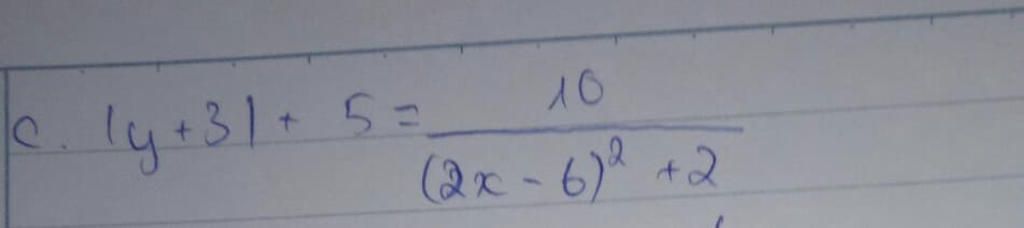 c. |y+3| + 5 = \frac{10}{(2x - 6)^2 + 2}